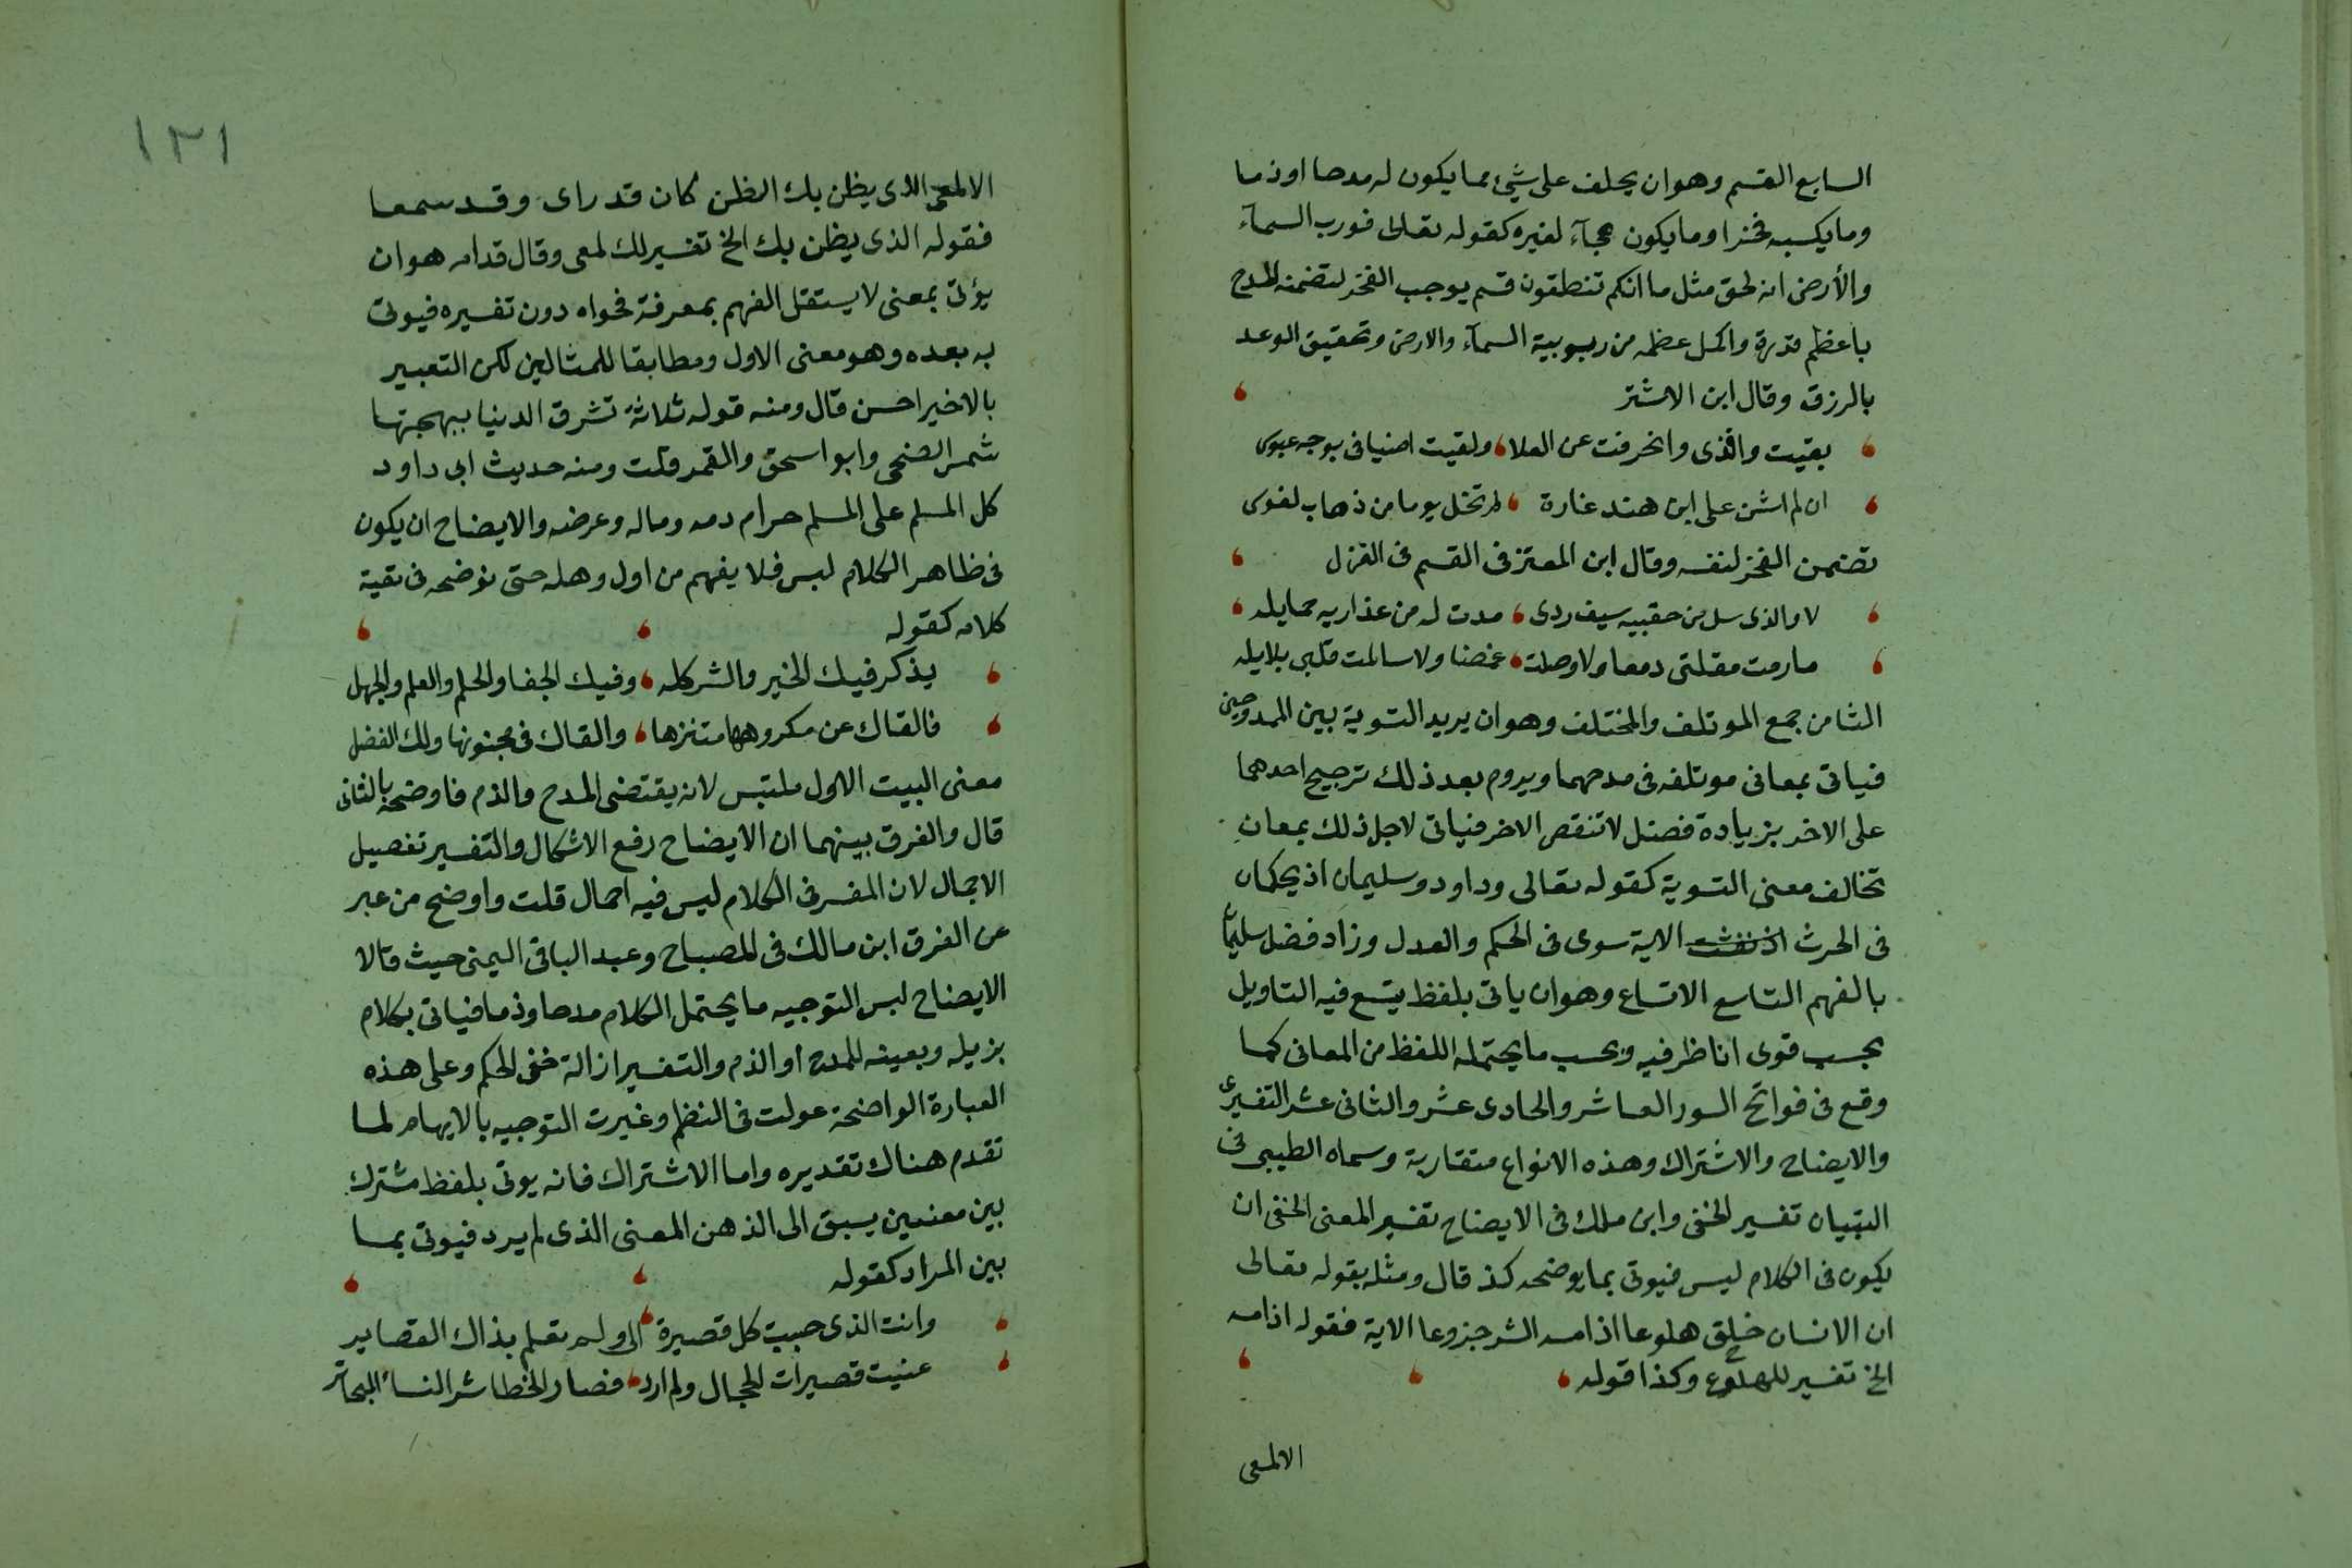 السابع القسم وهو ان يحلف على شيء مما يكون له مدحا او ذما
وما يكسبه فخرا وما يكون هجآء لغيره كقوله تعالى فورب السمآء
والأرض انه لحق مثل ما انكم تنطقون قسم يوجب الفخر لتضمنه المدح
باعظم قدرة واكمل عظمه من ربوبية السمآء والارض وتحقيق الوعد
بالرزق وقال ابن الاشتر
بقيت وافدى وانحرفت عن العلا ولقيت اضيافى بوجه عبوس
ان لم اشن على ابن هند غارة لم تخل يوما من ذهاب نفوس
تضتمن الفخر لنفسه وقال ابن المعتز فى القسم فى الغزل
لا والذى سل من حقبيه سيف ردى مدت له من عذاريه حمايله
ما رمت مقلتى دمعا ولا وصلت غمضا ولا سالمت قلبى بلابله
الثامن جمع الموتلف والمختلف وهو ان يريد التسوية بين الممدوحين
فياتى بمعانى موتلفه فى مدحهما ويروم بعد ذلك ترجيح احدهما
على الاخر بزيادة فضل لا تنقص الاخر فياتى لاجل ذلك بمعان
تخالف معنى التسوية كقوله تعالى وداود وسليمان اذ يحكمان
فى الحرث اذ نفشت الاية سوى فى الحكم والعدل وزاد فضل سليمان
بالفهم التاسع الاتساع وهو ان ياتى بلفظ يتسع فيه التاويل
بحسب قوى اناظر فيه وبحسب ما يحتمله اللفظ من المعانى كما
وقع فى فواتح السور العاشر والحادى عشر والثانى عشر التفسيرى
والايضاح والاشتراك وهذه الانواع متقاربة وسماه الطيبى فى
التبيان تفسير الخفى وابن ملك فى الايضاح تفسير المعنى الخفى ان
يكون فى الكلام ليس فيوتى بما يوضحه كذ قال ومثله بقوله تعالى
ان الانسان خلق هلوعا اذا مسه الشر جزوعا الاية فقوله اذا مسه
الخ تفسير للهلوع وكذا قوله
الالمعى
١٢١
الالمعى الذى يظن بك الظن كان قد راى وقد سمعا
فقوله الذى يظن بك الخ تفسير لك لمعى وقال قدامه هو ان
يؤتى بمعنى لا يستقل الفهم بمعرفة فحواه دون تفسيره فيوتى
به بعده وهو معنى الاول ومطابقا للمثالين لكن التعبير
بالاخير احسن قال ومنه قوله ثلاثة تشرق الدنيا ببهجتها
شمس الضحى وابو اسحق والقمر وقلت ومنه حديث ابى داود
كل المسلم على المسلم حرام دمه وماله وعرضه والايضاح ان يكون
فى ظاهر الكلام لبس فلا يفهم من اول وهله حتى نوضحه فى بقية
كلامه كقوله
يذكر فيك الخير والشر كله وفيك الجفا والحلم والعلم والجهل
فالقاك عن مكروهها متنزها والقاك فى مجنونها ولك الفضل
معنى البيت الاول ملتبس لانه يقتضى المدح والذم فاوضحه بالثانى
قال والفرق بينهما ان الايضاح رفع الاشكال والتفسير تفصيل
الاجمال لان المفسر فى الكلام ليس فيه اجمال قلت واوضح من عبر
عن الفرق ابن مالك فى المصباح وعبد الباقى اليمنى حيث قالا
الايضاح لبس التوجيه ما يحتمل الكلام مدحا وذما فياتى بكلام
يزيله ويعينه للمدح او الذم والتفسير ازالة خفى الحكم وعلى هذه
العبارة الواضحة عولت فى النظم وغيرت التوجيه بالايهام لما
تقدم هناك تقديره واما الاشتراك فانه يوتى بلفظ مشترك
بين معنيين يسبق الى الذهن المعنى الذى لم يرد فيوتى بما
بين المراد كقوله
وانت الذى حببت كل قصيرة الى ولم تعلم بذاك القصاير
عنيت قصيرات الحجال ولم ارد قصار الخطا شر النساء البحاتر